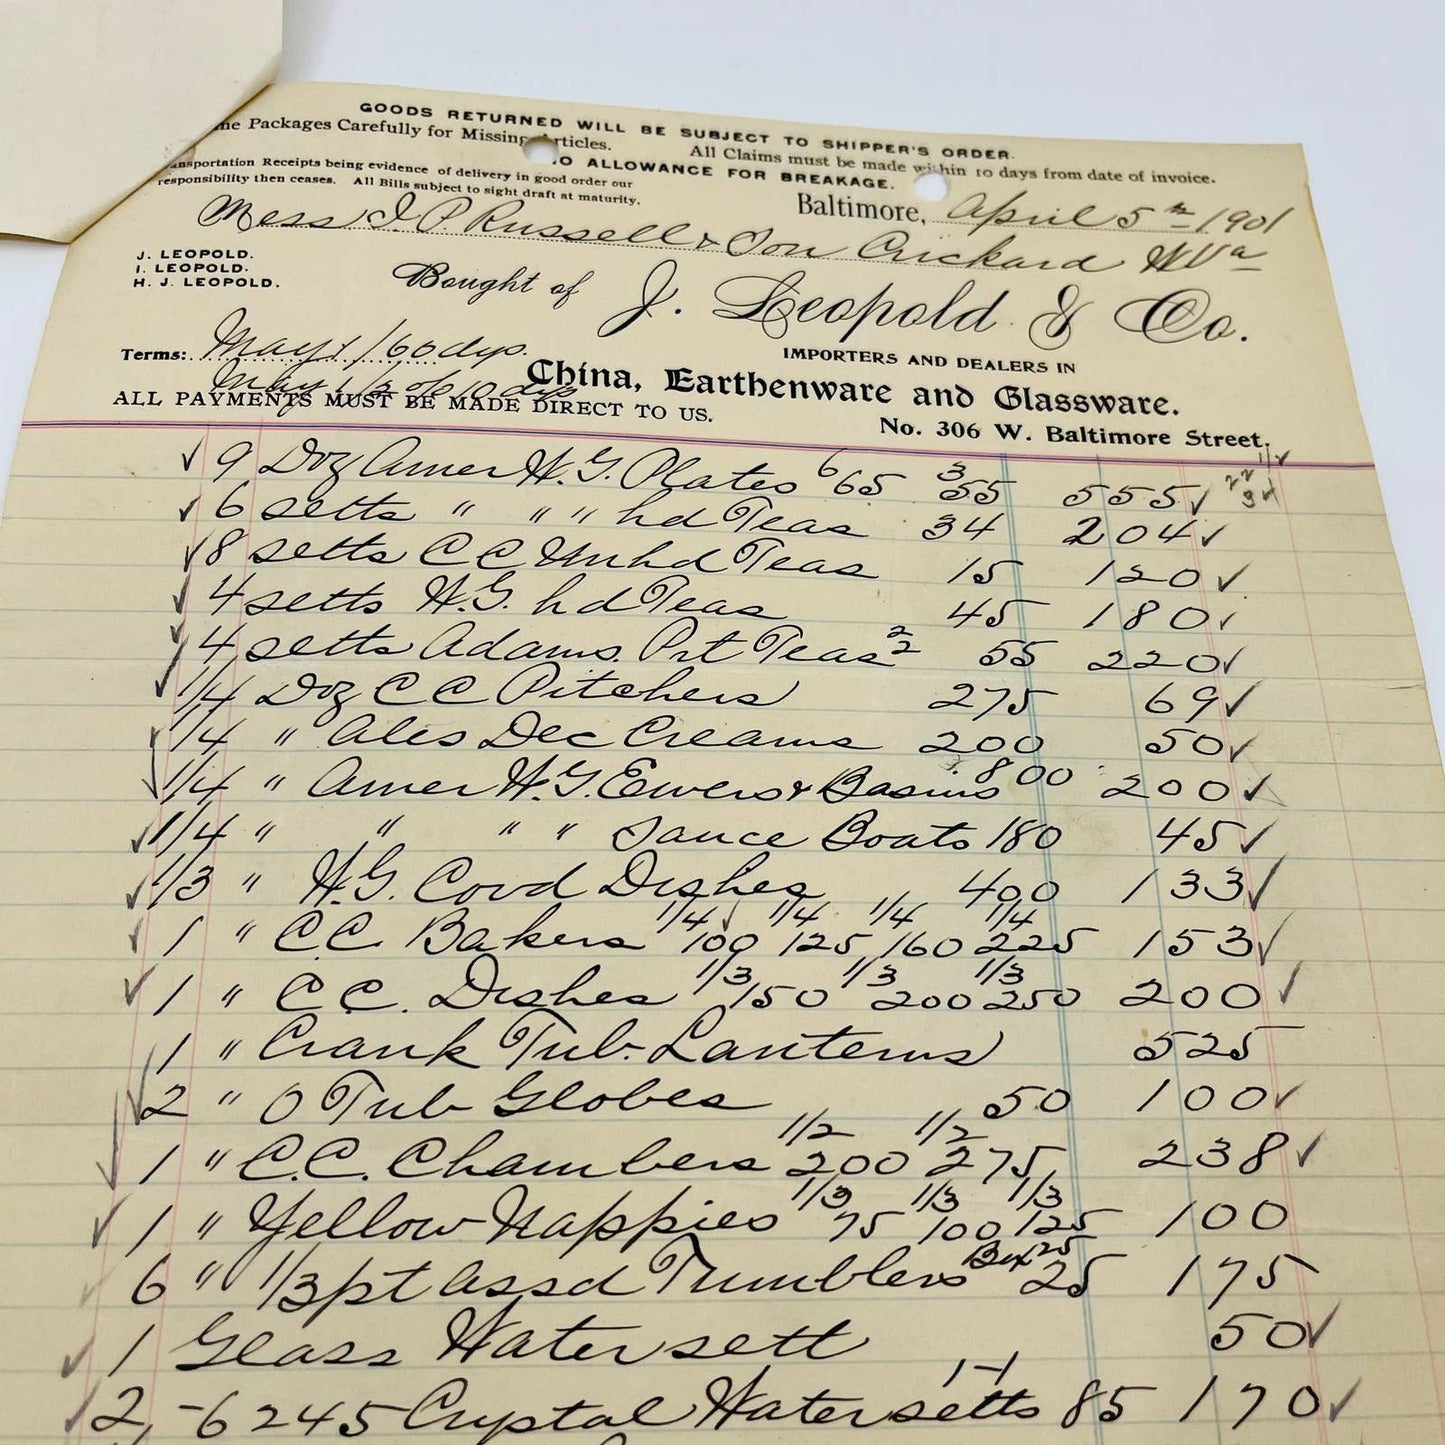 GOODS RETURNED WILL BE SUBJECT TO SHIPPER'S ORDER.
Packages Carefully for Missing Articles. All Claims must be made within 10 days from date of invoice.
NO ALLOWANCE FOR BREAKAGE.
Transportation Receipts being evidence of delivery in good order our
responsibility then ceases. All Bills subject to sight draft at maturity.
Baltimore, April 5th 1901
Mess J. P. Russell & Son Crickard W Va
J. LEOPOLD.
I. LEOPOLD.
H. J. LEOPOLD.
Bought of J. Leopold & Co.
IMPORTERS AND DEALERS IN
Terms: May 1/60 dys.
May 1/2 % 10 dys
China, Earthenware and Glassware.
ALL PAYMENTS MUST BE MADE DIRECT TO US.
No. 306 W. Baltimore Street.
9 Doz Amer W.G. Plates 6 65 3 55 555
6 setts " " " hd Teas 34 204
8 setts CC Unhd Teas 15 120
4 setts W.G. hd Teas 45 180
4 setts Adams Prt Teas 2/2 55 220
1/4 Doz CC Pitchers 275 69
1/4 " Ales Dec Creams 200 50
1/4 " Amer W.G. Ewers & Basins 800 200
1/4 " " " " Sauce Boats 180 45
1/3 " W.G. Covd Dishes 400 133
1 " C.C. Bakers 1/4 100 1/4 125 1/4 160 1/4 225 153
1 " C.C. Dishes 1/3 150 1/3 200 1/3 250 200
1 " Crank Tub. Lanterns 525
2 " 0 Tub Globes 50 100
1 " C.C. Chambers 1/2 200 1/2 275 238
1 " Yellow Nappies 1/3 75 1/3 100 1/3 125 100
6 " 1/3 pt assd Tumblers Box 25 25 175
1 Glass Water sett 50
2, -6245 Crystal Water setts 1-1 85 170